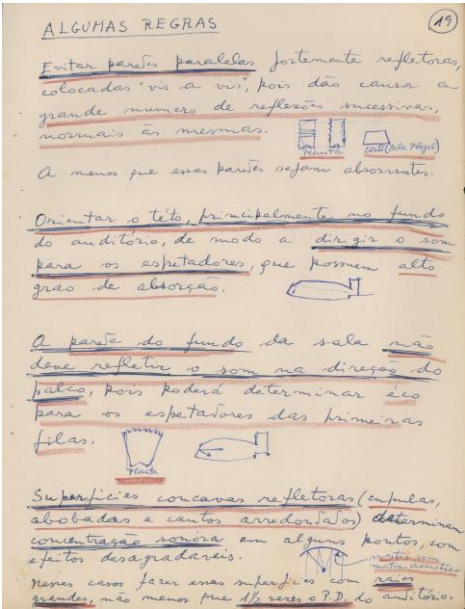 19
ALGUMAS REGRAS
Evitar paredes paralelas fortemente refletoras,
colocadas "vis a vis", pois dão causa a
grande numero de reflexões sucessivas,
normais às mesmas.
PLANTA corte (sala Pleyel)
A menos que essas paredes sejam absorventes.
Orientar o této, principalmente no fundo
do auditório, de modo a dirigir o som
para os espetadores, que possuem alto
grao de absorção.
A parede do fundo da sala não
deve refletir o som na direção do
palco, pois poderá determinar éco
para os espetadores das primeiras
filas.
Planta
Superficies concavas refletoras (cupulas,
abobadas e cantos arredondados) determinam
concentração sonora em alguns pontos, com
efeitos desagradáveis.
revestir com
material acústico
Nesses casos fazer essas superficies com raios
grandes, não menos que 1½ vezes o P.D. do auditório.